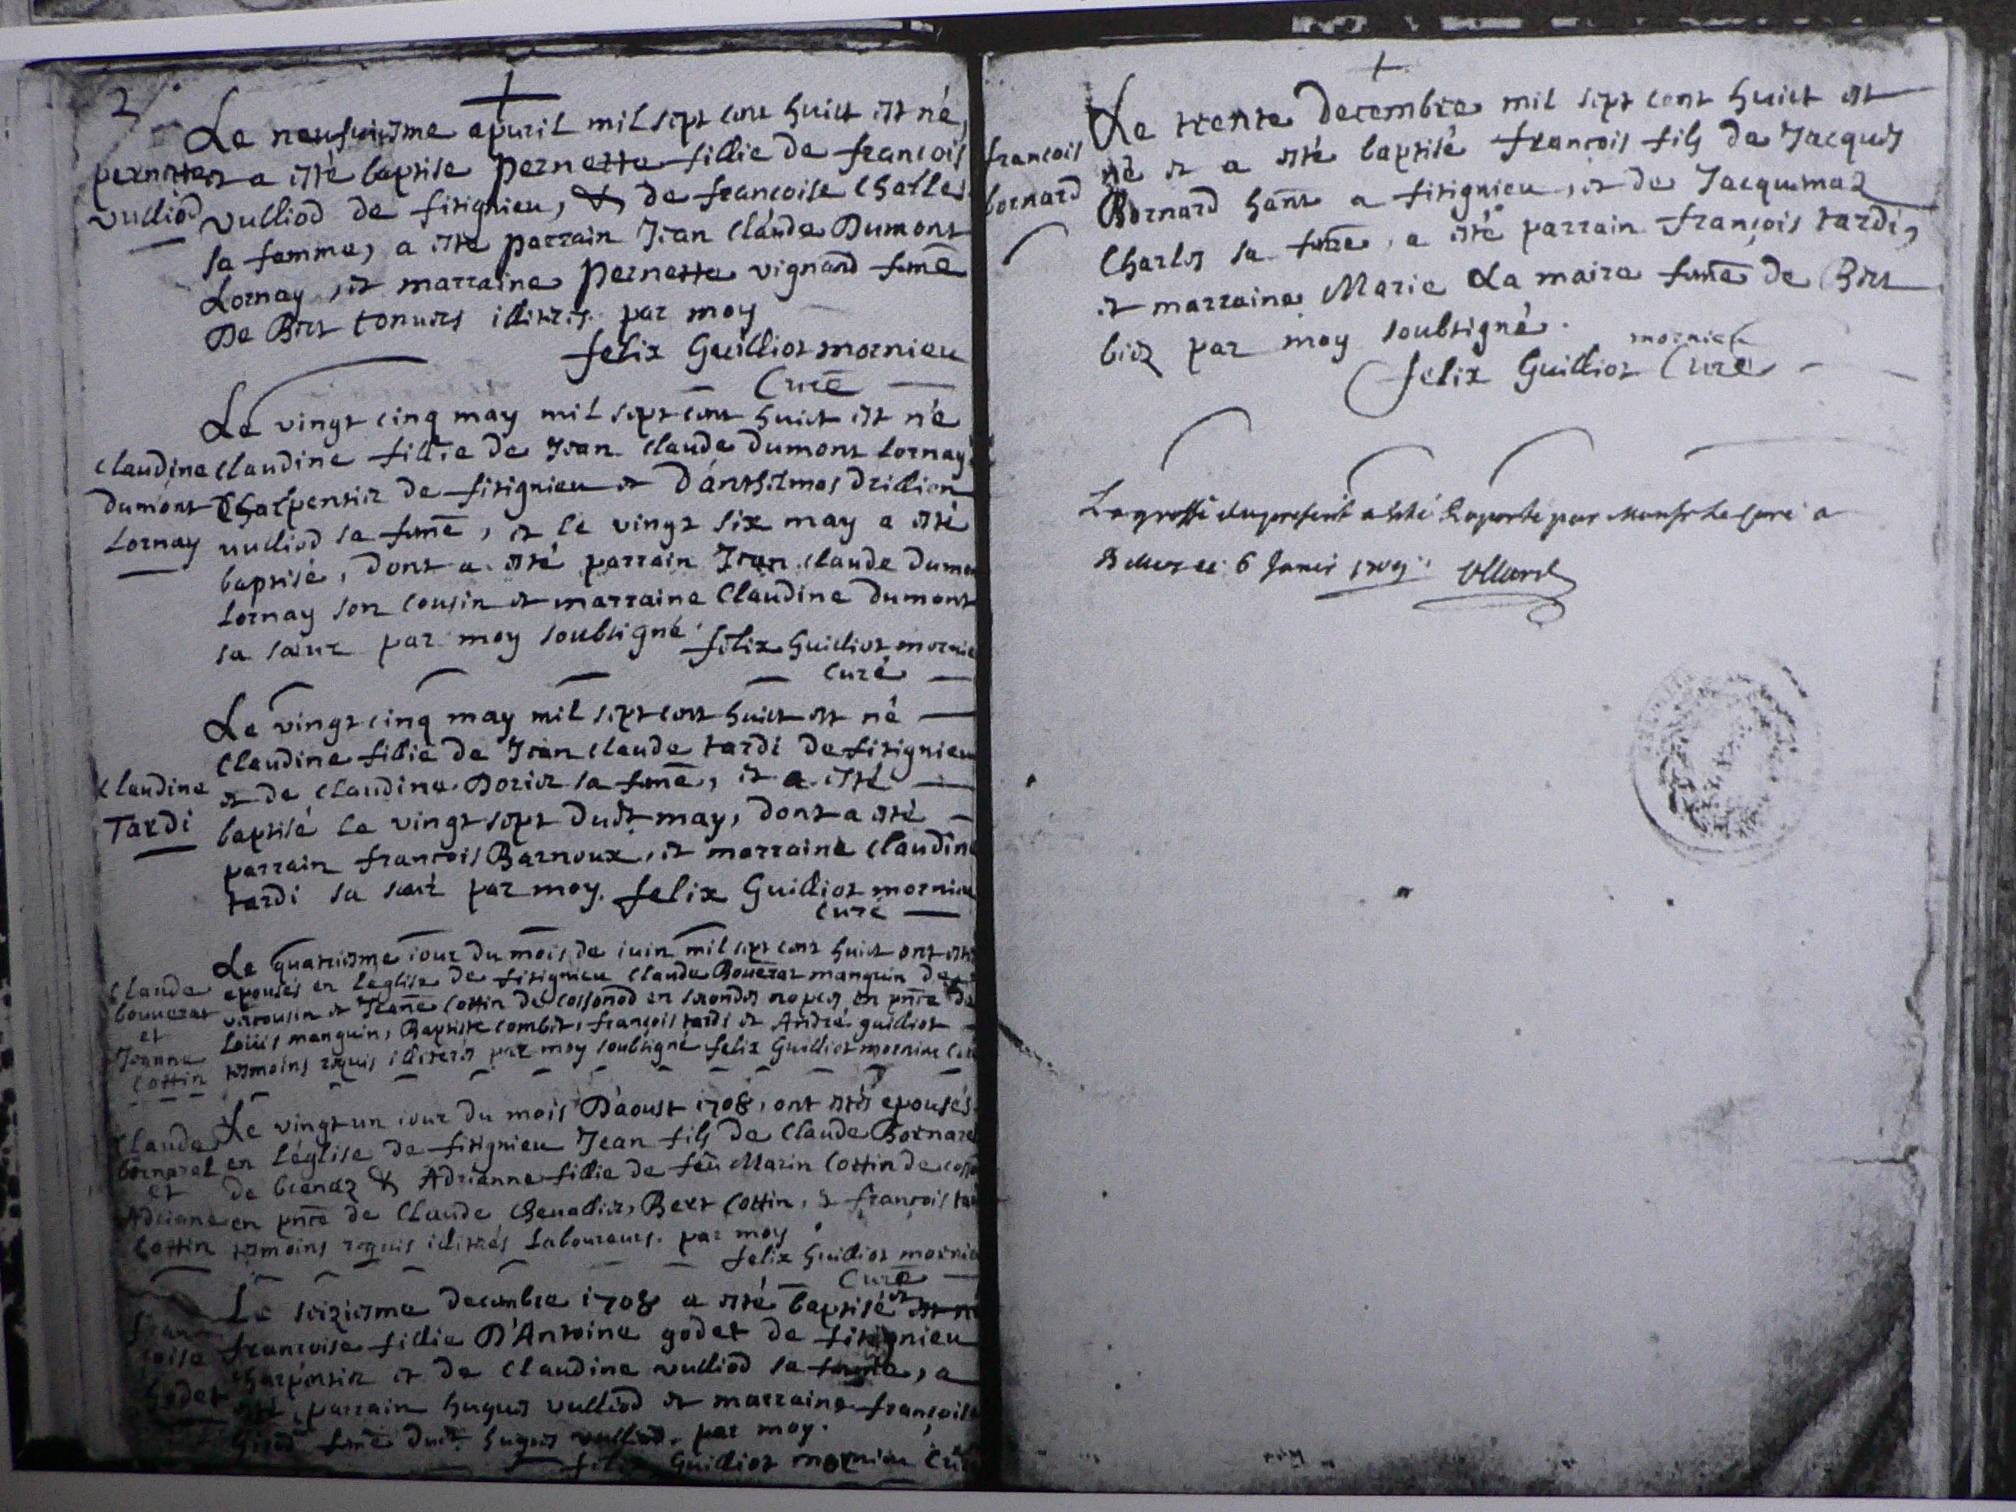 2
Le neufuiesme apuril mil sept cent huict est né,
pernette et a esté baptise pernette fillie de francois
vulliod vulliod de fitignieu, & de francoise Charles
sa femme, a esté parrain Jean Claude Dumont
Lornay, et marraine pernette vignand fem̃e
De Bert tonuers illiteres. par moy
felix Guilliot mornieu
Curé
Le vingt cinq may mil sept cent huict est né
Claudine Claudine fillie de Jean Claude dumont Lornay
dumont Charpentier de fitignieu et D'anthelmas drillion
Lornay vulliod sa fem̃e, et le vingt six may a esté
baptisé, dont a esté parrain Jean Claude dumont
Lornay son cousin et marraine Claudine dumont
sa sœur par moy soubsigné felix Guilliot mornieu
Curé
Le vingt cinq may mil sept cent huict est né
Claudine fillie de Jean Claude tardi de fitignieu
Claudine et de Claudine Dorier sa fem̃e, et a esté
Tardi baptisé le vingt sept dudt may, dont a esté
parrain francois Barnoux, et marraine Claudine
tardi sa sœur par moy. felix Guilliot mornieu
Curé
Le quatriesme iour du mois de iuin mil sept cent huict ont esté
Claude epousés en leglise de fitignieu Claude Bouuerat manguin de
bouuerat et Jeanne Cottin de cossonod en secondes nopces en pñce de
et Loüis manguin, Baptiste combet, françois tardi et André guilliot
Jeanne tesmoins requis illiterés par moy soubsigné felix Guilliot mornieu Curé
Cottin
Le vingt un iour du mois D'aoust 1708, ont estés epousés
Claude en l'église de fitignieu Jean fils de Claude Bornard
bornard de brenaz & Adrianne fillie de feu Marin Cottin de
et
Adriane en pñce de Claude Cheuallier, Bert Cottin, & françois
Cottin tesmoins requis illitrés Laboureurs. par moy
felix Guilliot mornieu
Curé
Le seiziesme decembre 1708 a esté baptisé et est né
fran francoise fillie D'Antoine godet de fitignieu
coise charpentier et de Claudine vulliod sa femme, a
Godet esté parrain hugues vulliod et marraine françoise
fem̃e dudt hugues vulliod. par moy.
felix Guilliot mornieu Curé
Le trente decembre mil sept cent huict est
francois né et a esté baptisé francois fils de Jacques
bornard Bornard hañt a fitignieu, et de Jacquemaz
Charles sa fem̃e, a esté parrain françois tardi,
et marraine Marie La maire fem̃e de Bert
biez par moy soubsigné.
mornieu
felix Guilliot Curé
La grosse du present a esté Raporté par Monsr Le Curé a
Belley ce 6 Janvier 1709